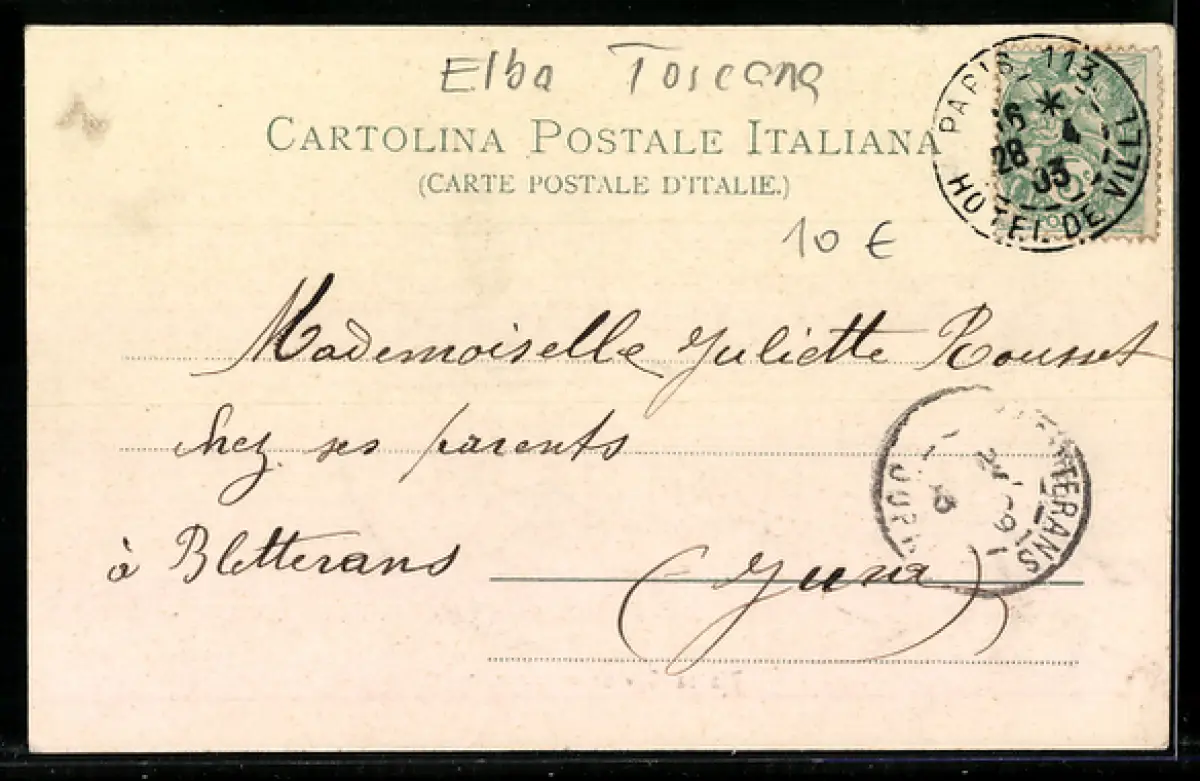 Elba Toscana
CARTOLINA POSTALE ITALIANA
(CARTE POSTALE D'ITALIE.)
PARIS 113
*
HOTEL DE VILLE
28 4 03
10 €
Mademoiselle Juliette Rousset
chez ses parents
à Bletterans
(Jura)